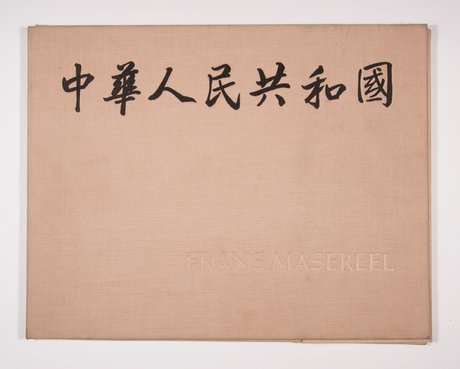 中華人民共和國
FRANS MASEREEL